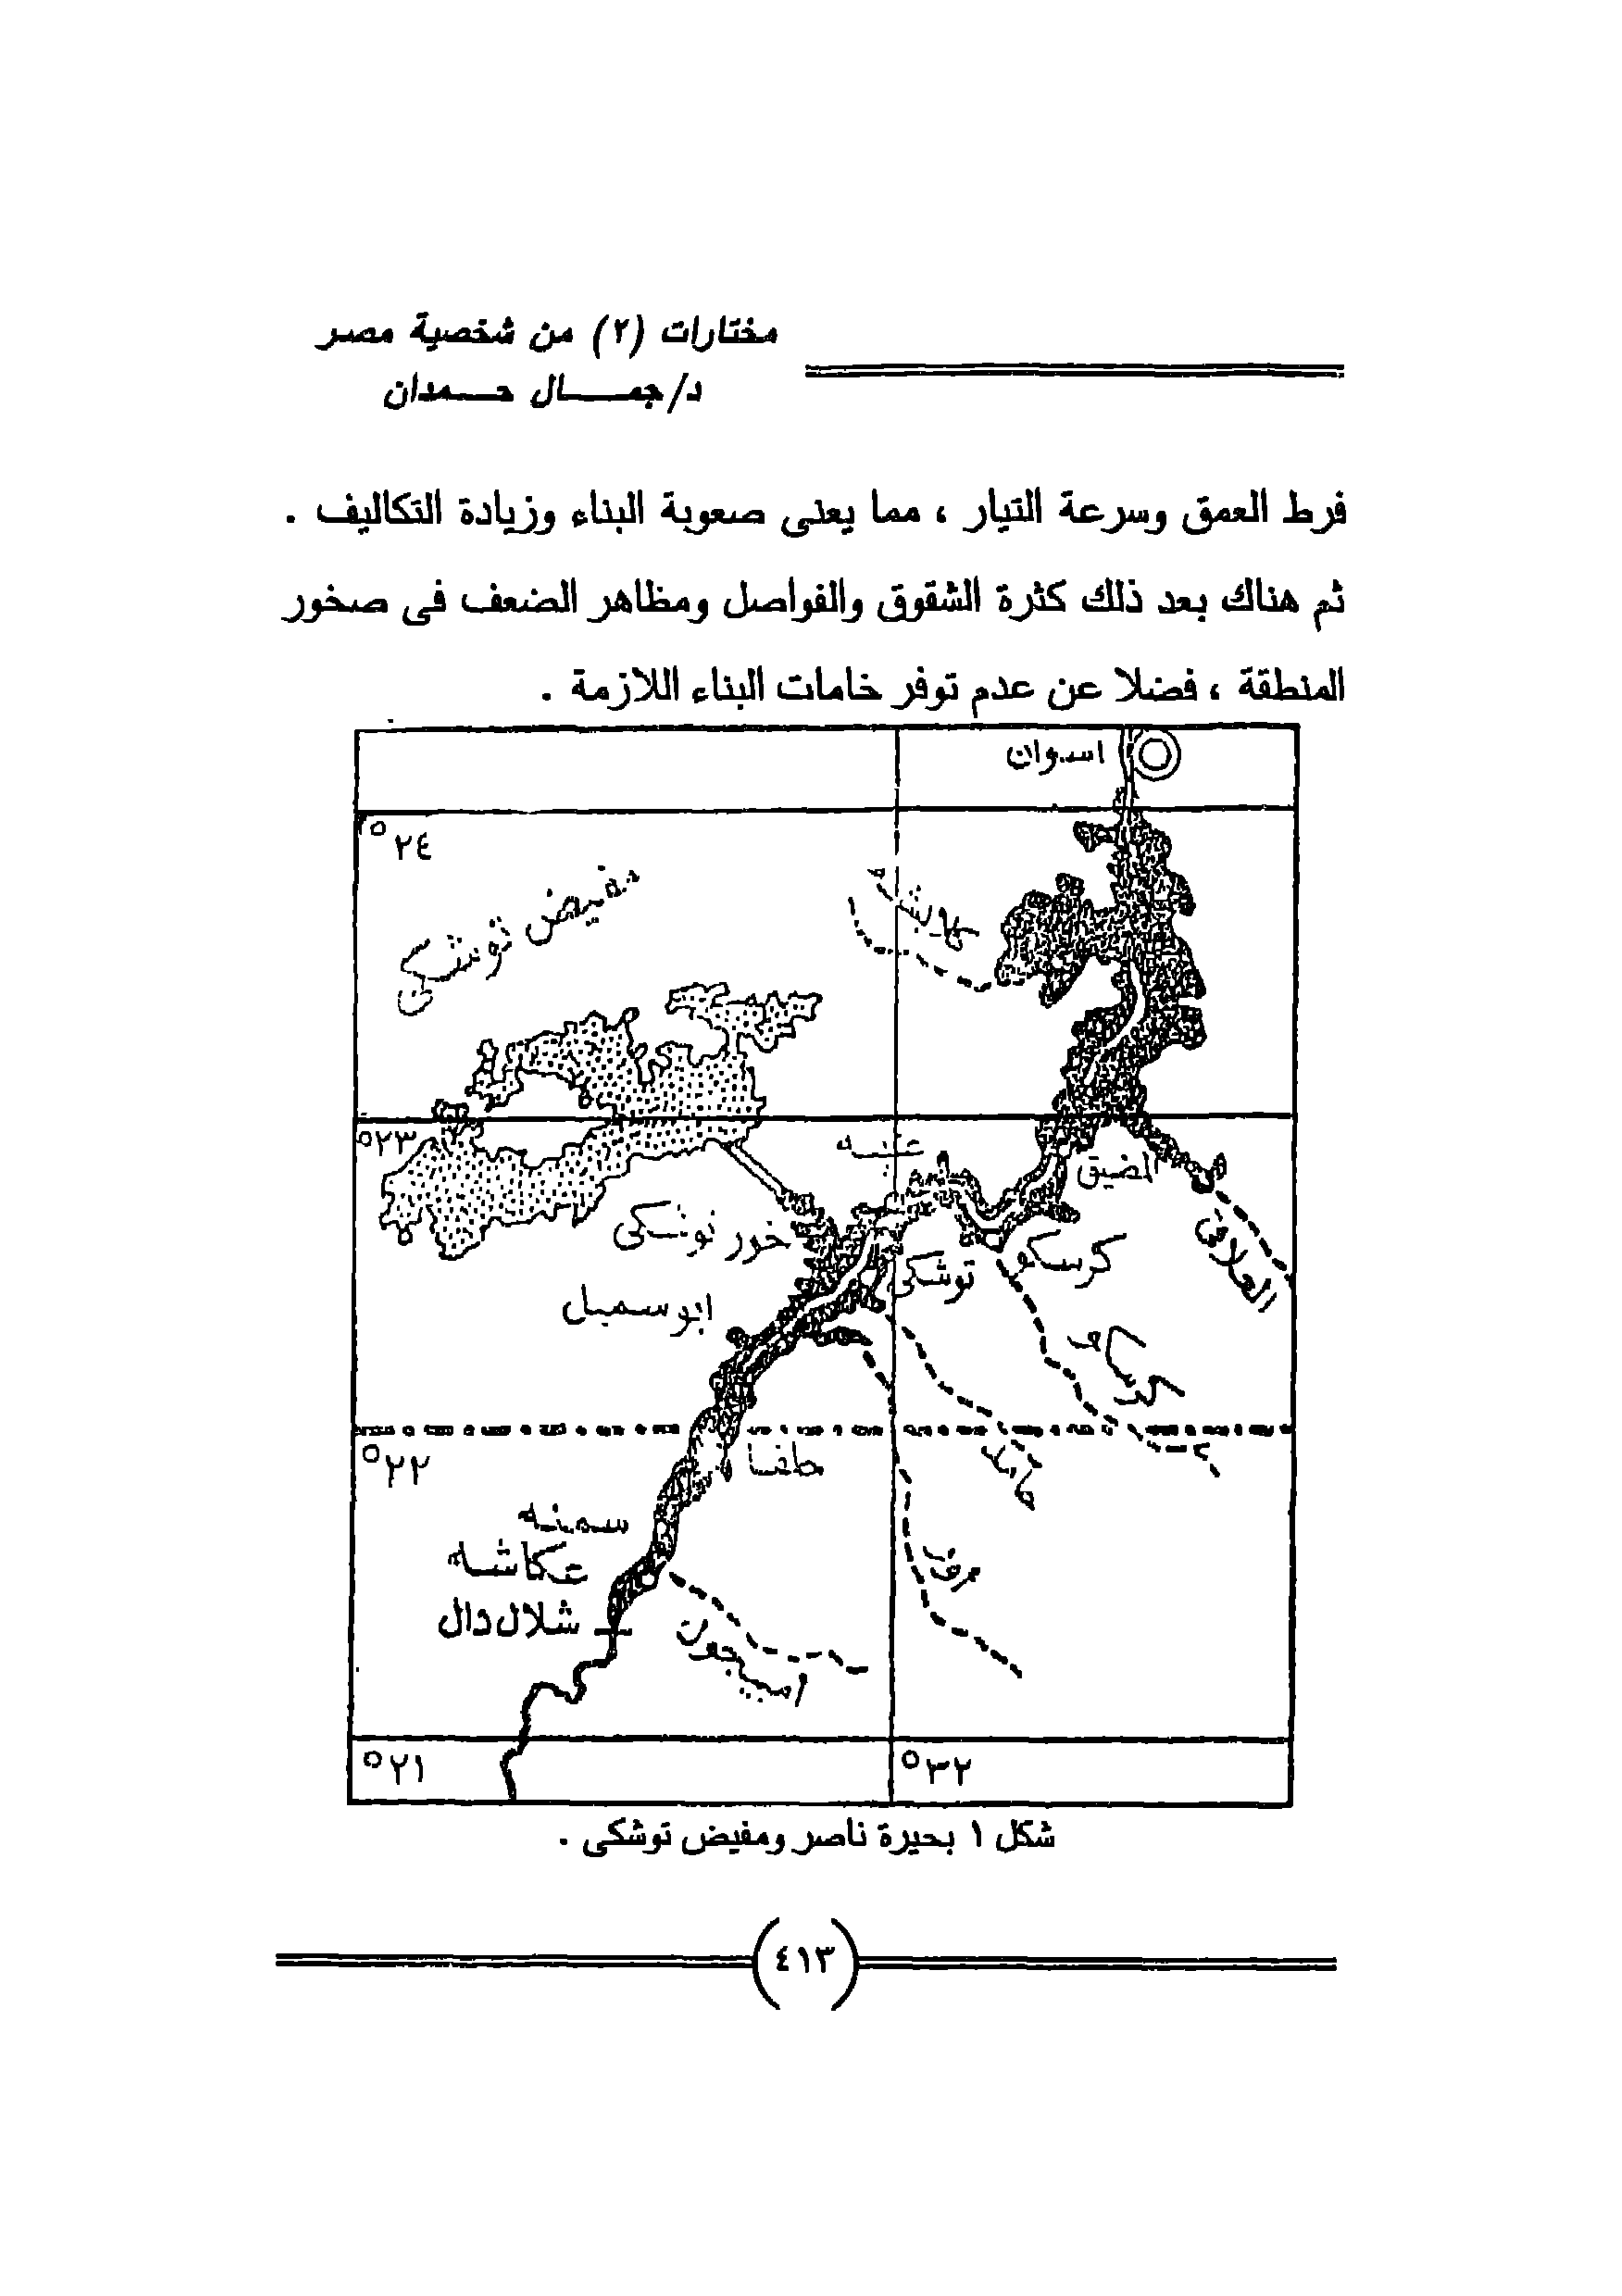 مختارات (٢) من شخصية مصر
د/جمـــــال حـــمدان
فرط العمق وسرعة التيار ، مما يعنى صعوبة البناء وزيادة التكاليف .
ثم هناك بعد ذلك كثرة الشقوق والفواصل ومظاهر الضعف فى صخور
المنطقة ، فضلا عن عدم توفر خامات البناء اللازمة .
اسوان
٢٤°
مفيض توشكى
٢٣°
الضيق
خور توشكى
توشكى
كرسكو
العلاقى
ابو سمبل
٢٢°
حلفا
سمنه
عكاشه
شلال دال
٢١°
٣٢°
شكل ١ بحيرة ناصر ومفيض توشكى .
٤١٣